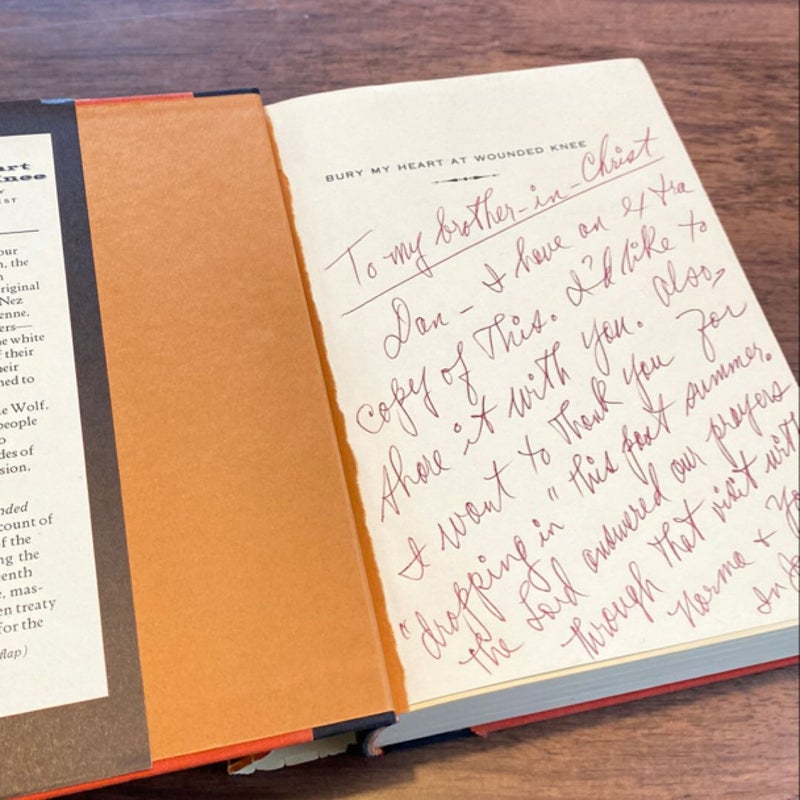 art
Knee
Y
EST
our
n, the
n
riginal
Nez
enne,
ers—
e white
f their
heir
ned to
e Wolf,
people
o
des of
sion,
nded
count of
f the
ng the
eenth
e, mas-
en treaty
for the
flap)
BURY MY HEART AT WOUNDED KNEE
To my brother-in-Christ
Dan - I have an extra
copy of This. I'd like to
share it with you. Also,
I want to Thank you for
"dropping in" this past summer.
the Lord answered our prayers
through That visit with
Norma + Yo
In J